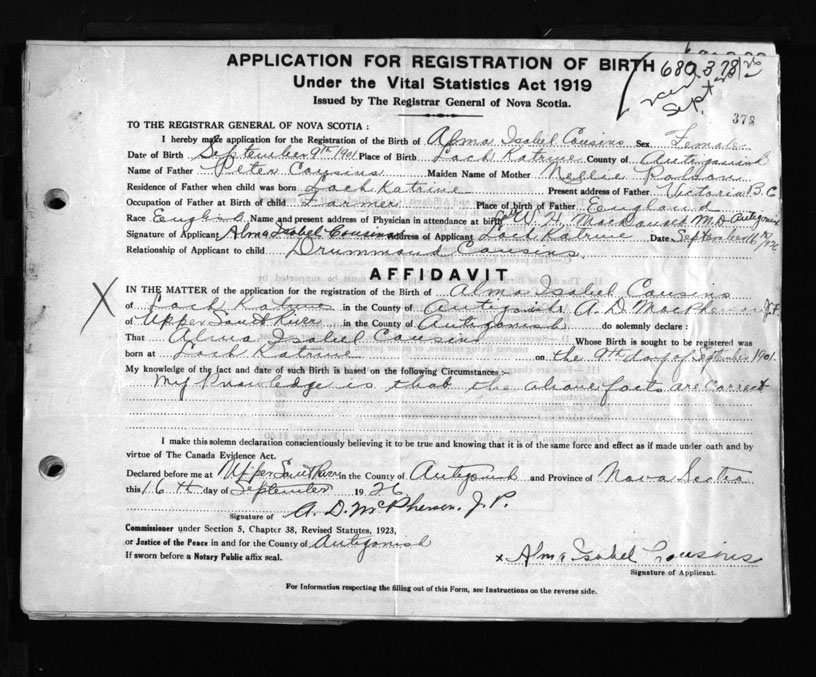 APPLICATION FOR REGISTRATION OF BIRTH
680378
Under the Vital Statistics Act 1919
Issued by The Registrar General of Nova Scotia.
Sept
378
TO THE REGISTRAR GENERAL OF NOVA SCOTIA :
I hereby make application for the Registration of the Birth of Alma Isabel Cousins Sex Female
Date of Birth September 9th 1901 Place of Birth Loch Katrine County of Antigonish
Name of Father Peter Cousins Maiden Name of Mother Nellie Polson
Residence of Father when child was born Loch Katrine Present address of Father Victoria B.C
Occupation of Father at Birth of child Farmer Place of birth of Father England
Race English Name and present address of Physician in attendance at birth W. H. MacDonald M.D Antigonish
Signature of Applicant Alma Isabel Cousins Address of Applicant Loch Katrine Date September 16th 1926
Relationship of Applicant to child Drummond Cousins
AFFIDAVIT
X
IN THE MATTER of the application for the registration of the Birth of Alma Isabel Cousins
of Loch Katrine in the County of Antigonish A. D. MacPherson J.P.
of Upper South River in the County of Antigonish do solemnly declare :
That Alma Isabel Cousins Whose Birth is sought to be registered was
born at Loch Katrine on the 9th day of September 1901.
My knowledge of the fact and date of such Birth is based on the following Circumstances :-
My Knowledge is that the above facts are Correct
I make this solemn declaration conscientiously believing it to be true and knowing that it is of the same force and effect as if made under oath and by
virtue of The Canada Evidence Act.
Declared before me at Upper South River in the County of Antigonish and Province of Nova Scotia
this 16th day of September 1926
Signature of A. D. McPherson. J. P.
Commissioner under Section 5, Chapter 38, Revised Statutes, 1923,
or Justice of the Peace in and for the County of Antigonish
If sworn before a Notary Public affix seal.
x Alma Isabel Cousins
Signature of Applicant.
For Information respecting the filling out of this Form, see Instructions on the reverse side.